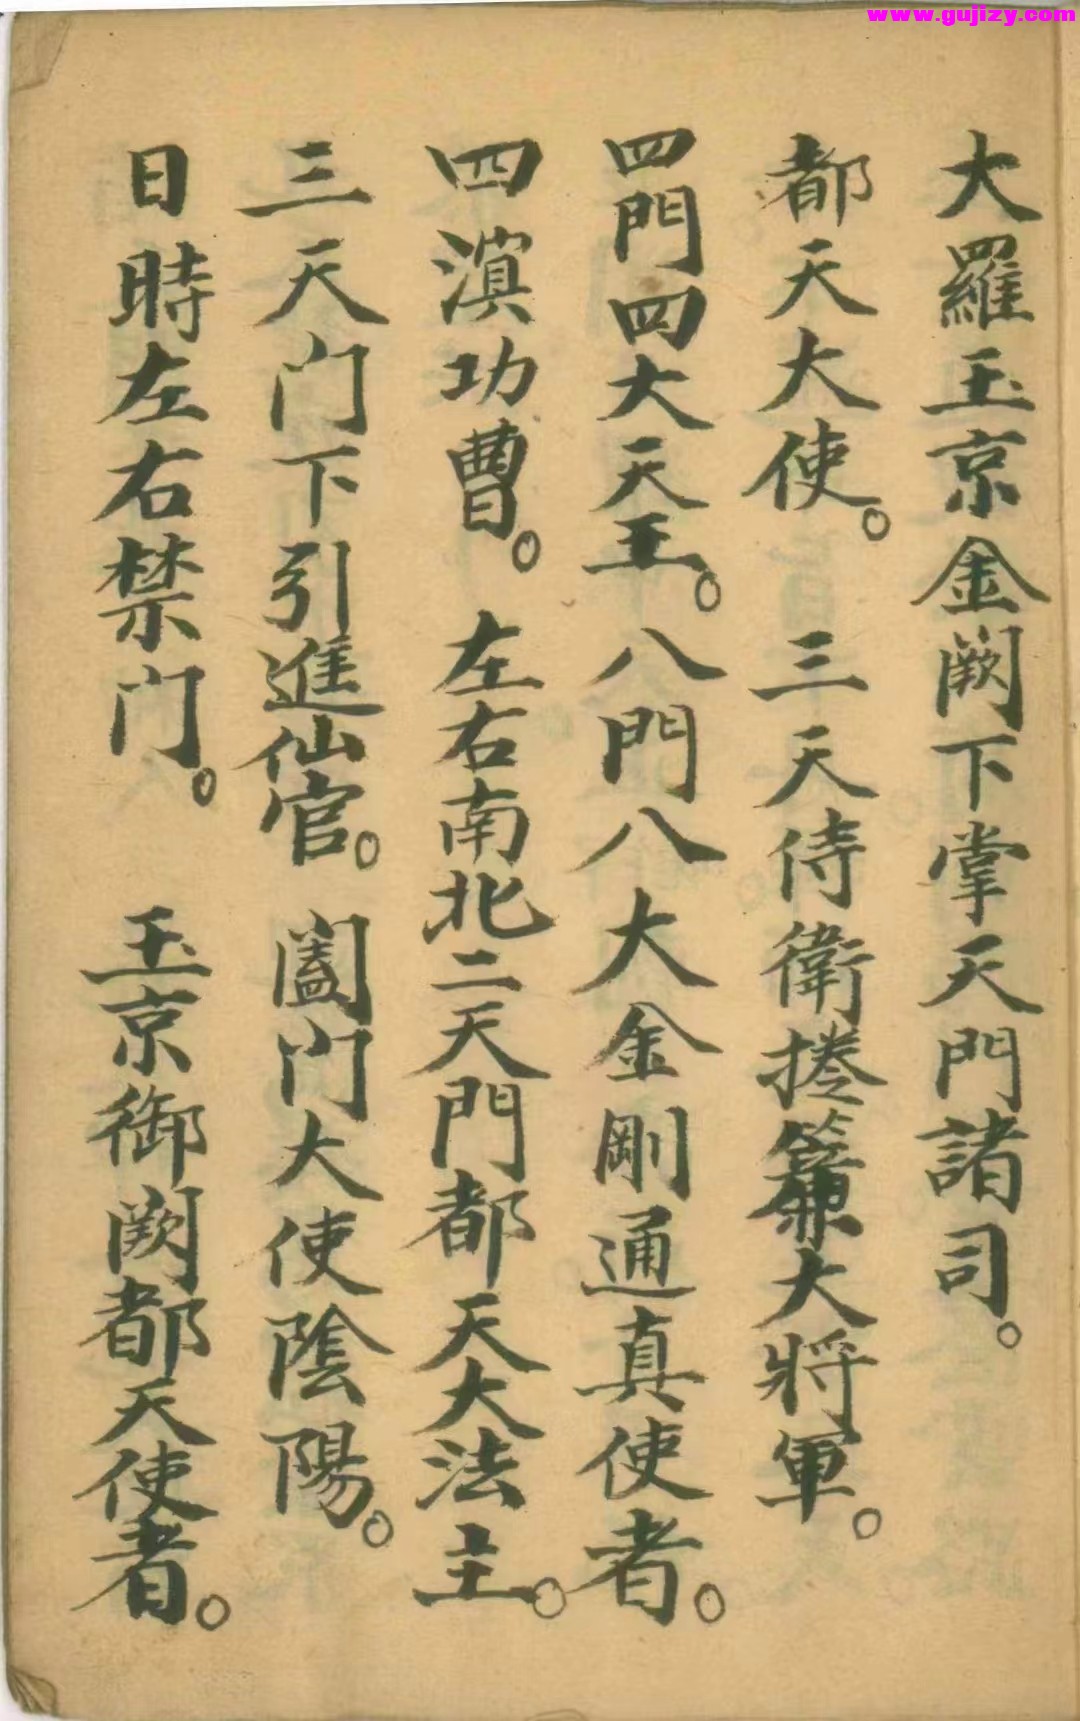 www.gujizy.com
大羅玉京金闕下掌天門諸司。
都天大使。三天侍衛捲簾大將軍。
四門四大天王。八門八大金剛通真使者。
四滇功曹。左右南北二天門都天大法主。
三天门下引進仙官。闔门大使陰陽。
日時左右禁门。玉京御闕都天使者。